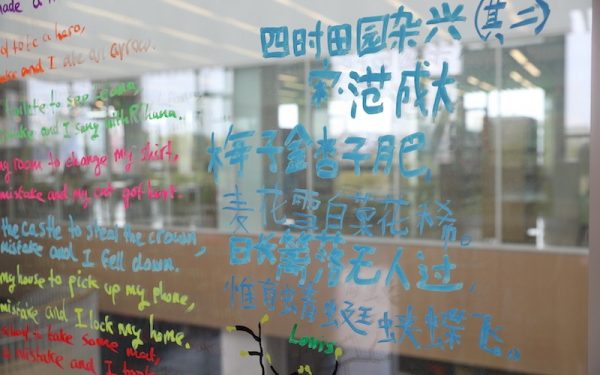 made a
to be a hero,
and I ate an arrow.
to see
and I sang with Rihana.
room to change my shirt,
mistake and my cat got hurt.
the castle to steal the crown,
mistake and I fell down.
my house to pick up my phone,
mistake and I lock my home.
to take some meat,
mistake and I
四时田园杂兴(其二)
宋范成大
梅子金杏子肥,
麦花雪白菜花稀。
日长篱落无人过,
惟有蜻蜓蛱蝶飞。
Louis